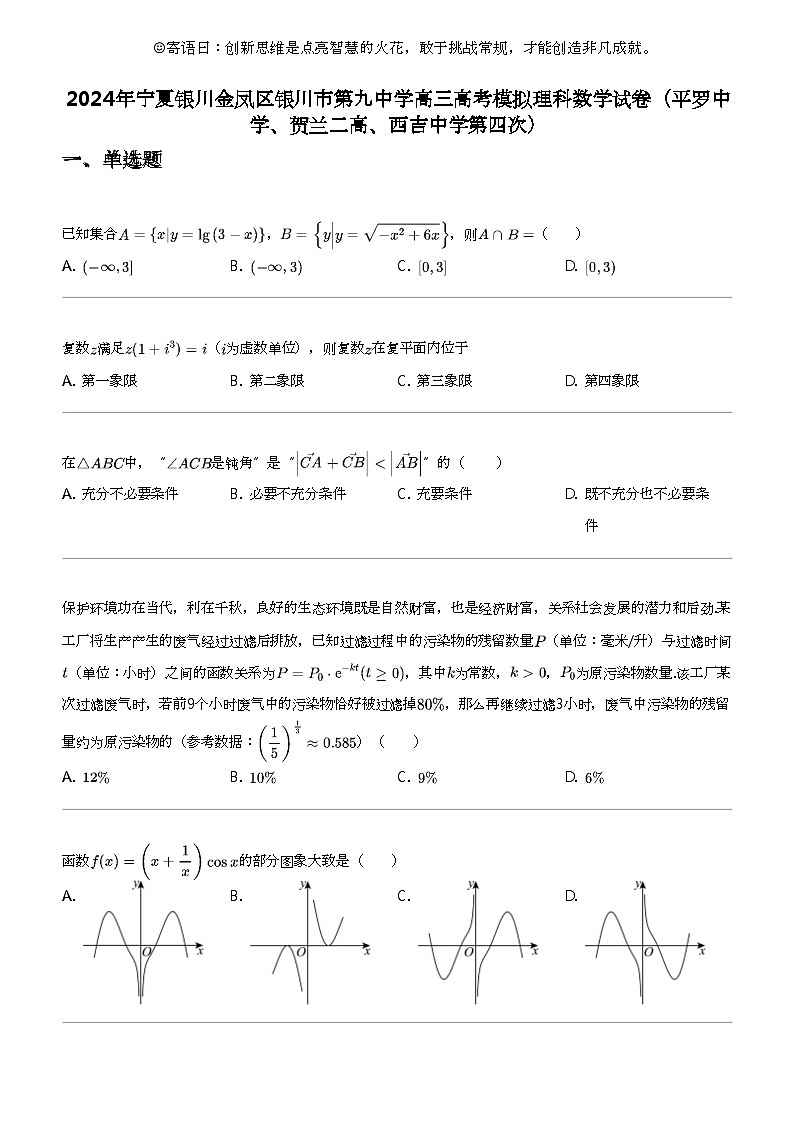 ☺寄语日：创新思维是点亮智慧的火花，敢于挑战常规，才能创造非凡成就。
2024年宁夏银川金凤区银川市第九中学高三高考模拟理科数学试卷（平罗中
学、贺兰二高、西吉中学第四次）
一、单选题
已知集合A = {x|y = lg (3 − x)}，B = {y|y = √(−x² + 6x)}，则A ∩ B =（　　）
A. (−∞, 3]　B. (−∞, 3)　C. [0, 3]　D. [0, 3)
复数z满足z(1 + i³) = i（i为虚数单位），则复数z在复平面内位于
A. 第一象限　B. 第二象限　C. 第三象限　D. 第四象限
在△ABC中，“∠ACB是钝角”是“|C⃗A + C⃗B| < |A⃗B|”的（　　）
A. 充分不必要条件　B. 必要不充分条件　C. 充要条件　D. 既不充分也不必要条
件
保护环境功在当代，利在千秋，良好的生态环境既是自然财富，也是经济财富，关系社会发展的潜力和后劲.某
工厂将生产产生的废气经过过滤后排放，已知过滤过程中的污染物的残留数量P（单位：毫米/升）与过滤时间
t（单位：小时）之间的函数关系为P = P₀ · e^(−kt)(t ≥ 0)，其中k为常数，k > 0，P₀为原污染物数量.该工厂某
次过滤废气时，若前9个小时废气中的污染物恰好被过滤掉80%，那么再继续过滤3小时，废气中污染物的残留
量约为原污染物的（参考数据：(1/5)^(1/3) ≈ 0.585）（　　）
A. 12%　B. 10%　C. 9%　D. 6%
函数f(x) = (x + 1/x) cos x的部分图象大致是（　　）
A.　B.　C.　D.
y　y　y　y
O　x　O　x　O　x　O　x